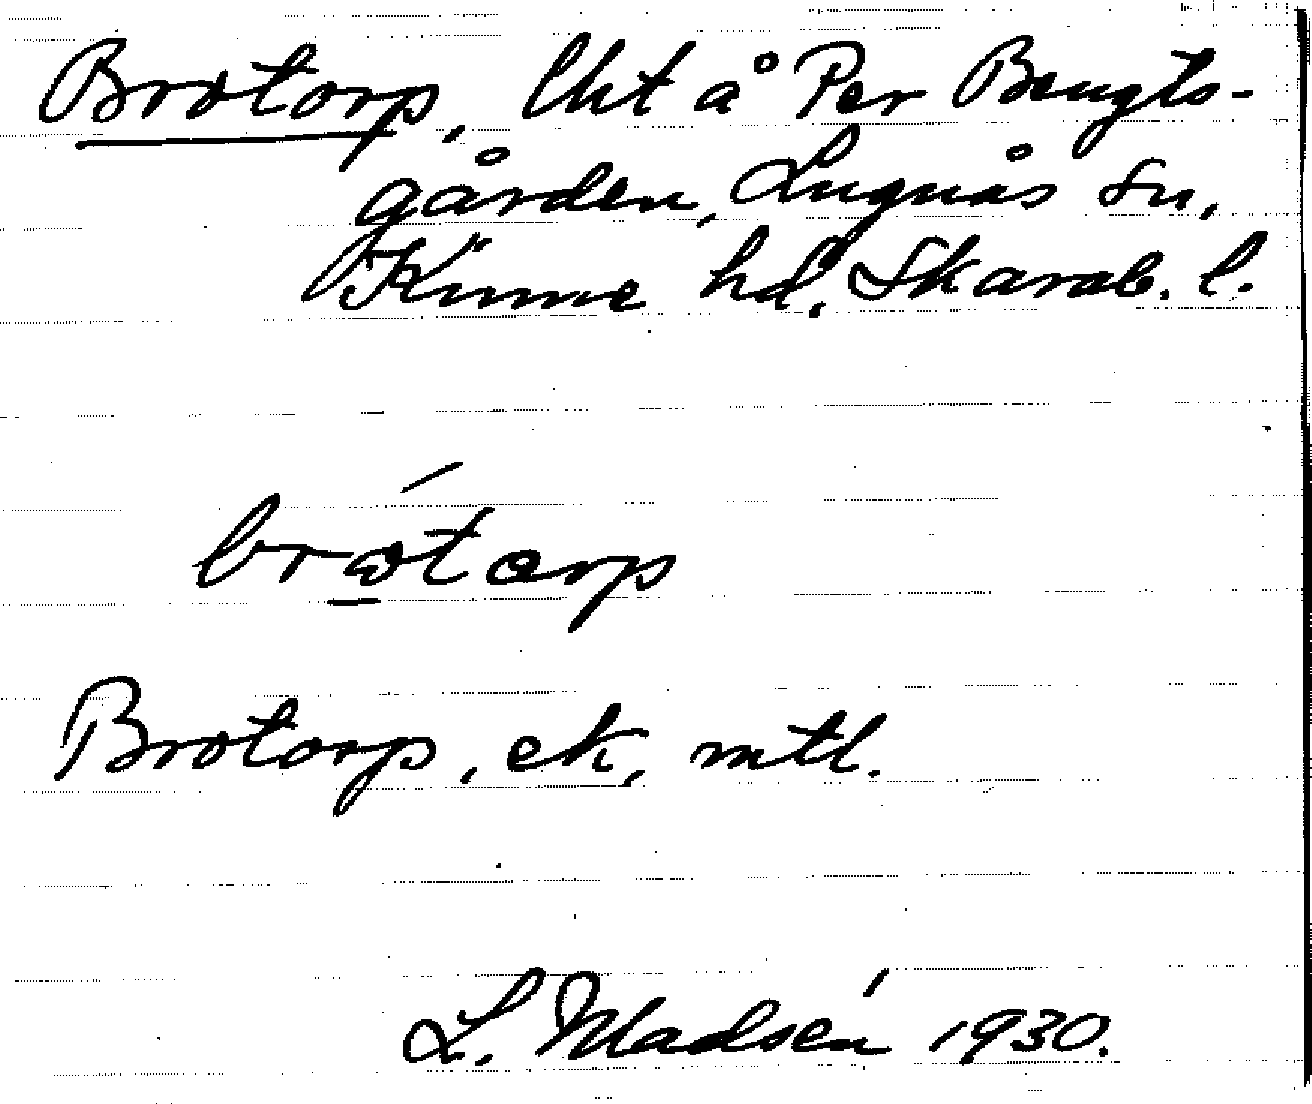 Brotorp, lht å Per Bengts-
gården, Lugnås sn,
Kinne hd, Skarab. l.
brotorp
Brotorp, ek, mtl.
L. Madsén 1930.